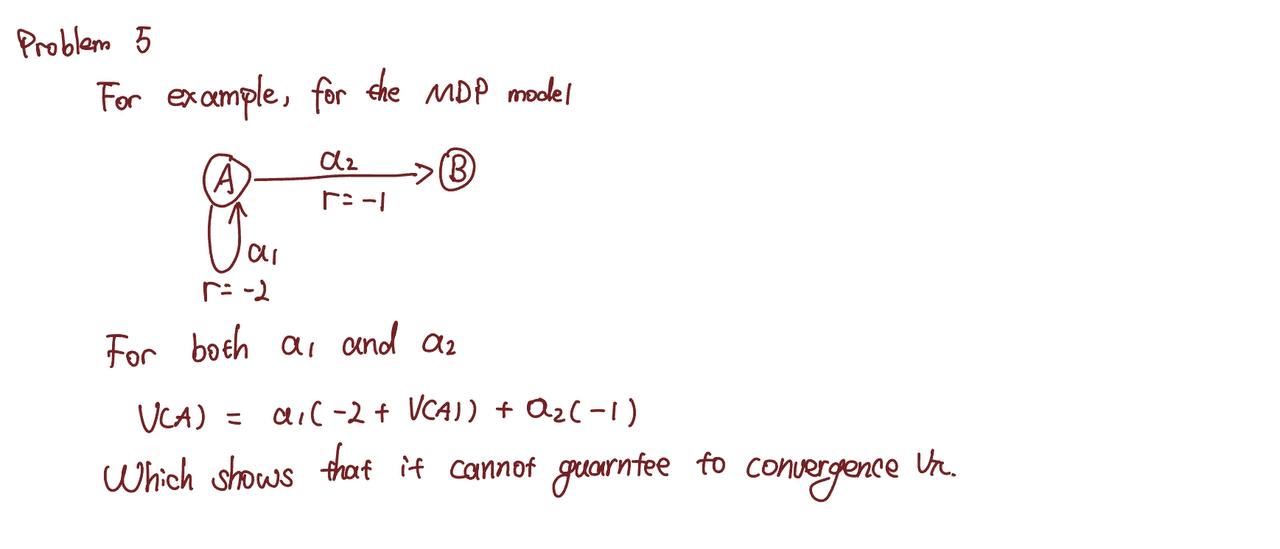 Problem 5
For example, for the MDP model
A a2 B
r = -1
a1
r = -2
For both a1 and a2
V(A) = a1(-2 + V(A)) + a2(-1)
Which shows that it cannot guarntee to convergence Vπ.